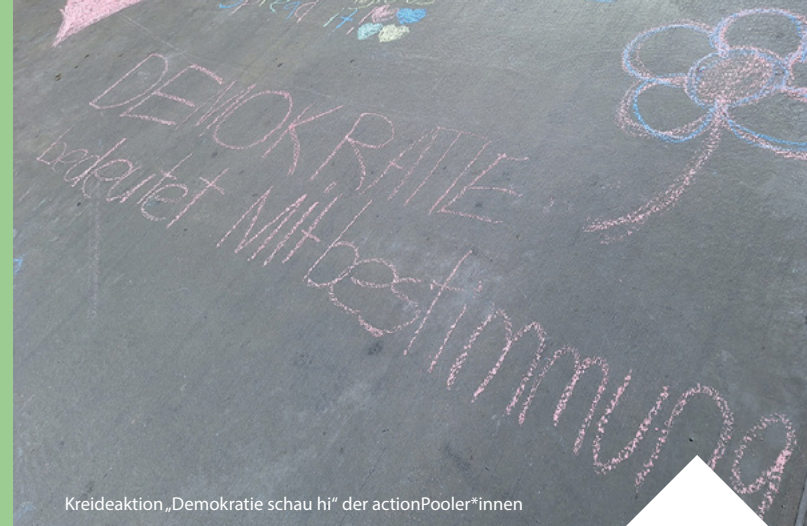 DEMOKRATIE
bedeutet Mitbestimmung
Kreideaktion „Demokratie schau hi“ der actionPooler*innen